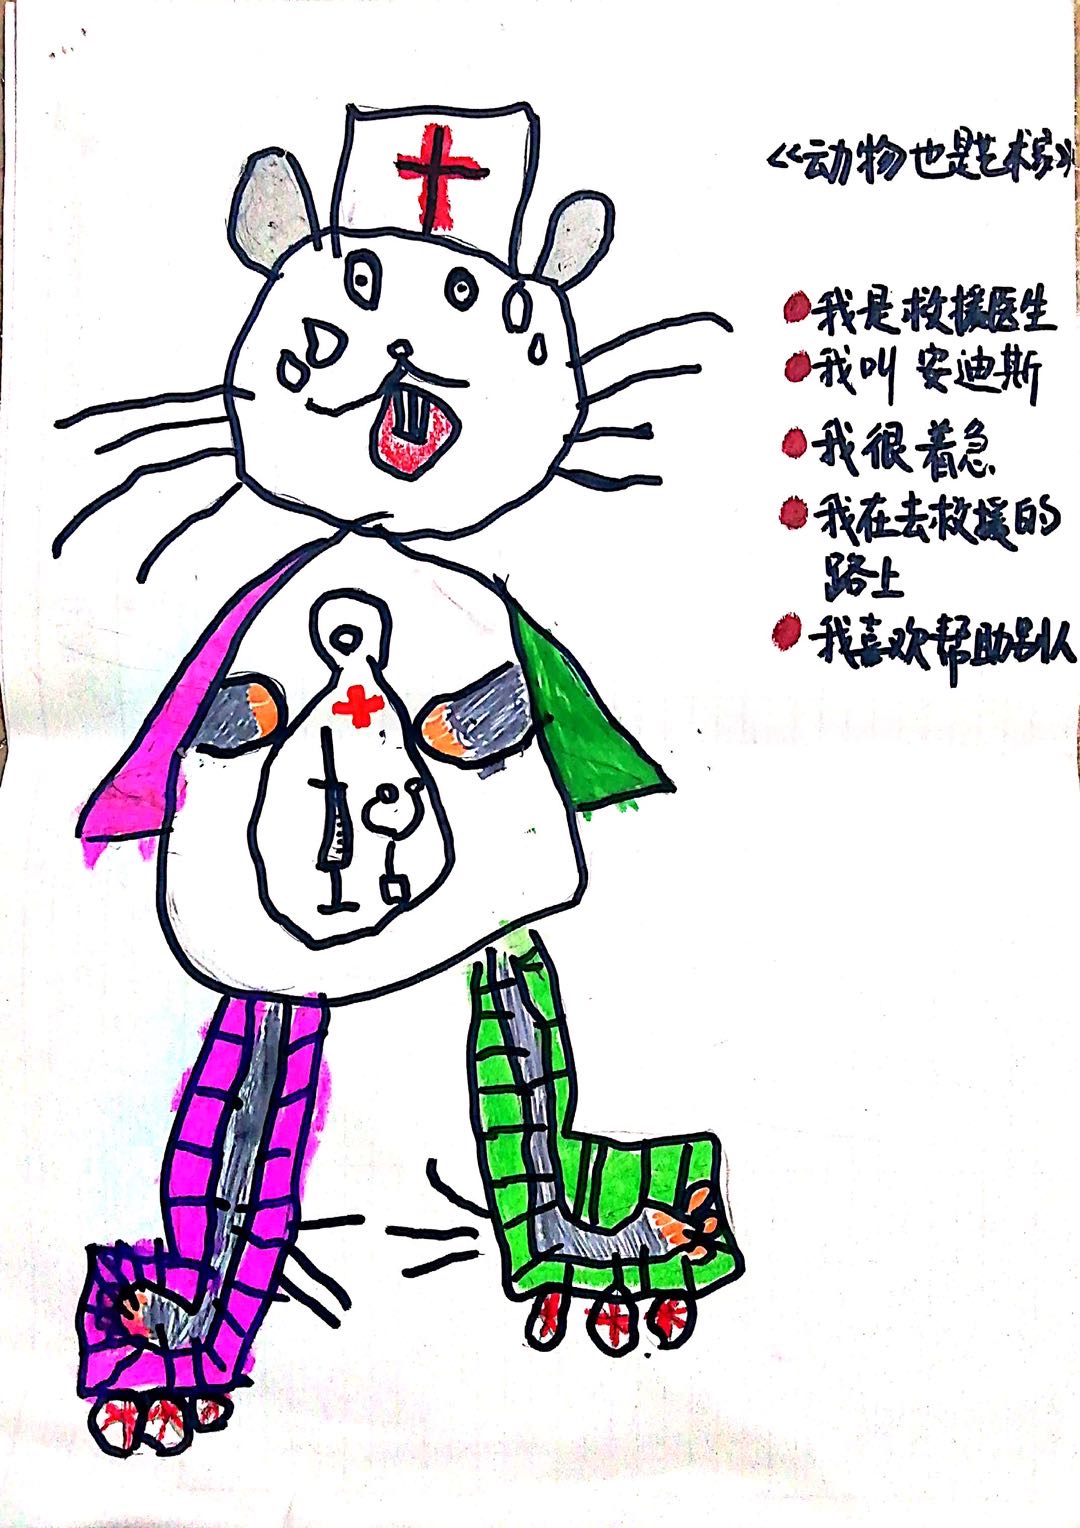 《动物也是艺术家》
我是救援医生
我叫安迪斯
我很着急
我在去救援的
路上
我喜欢帮助别人